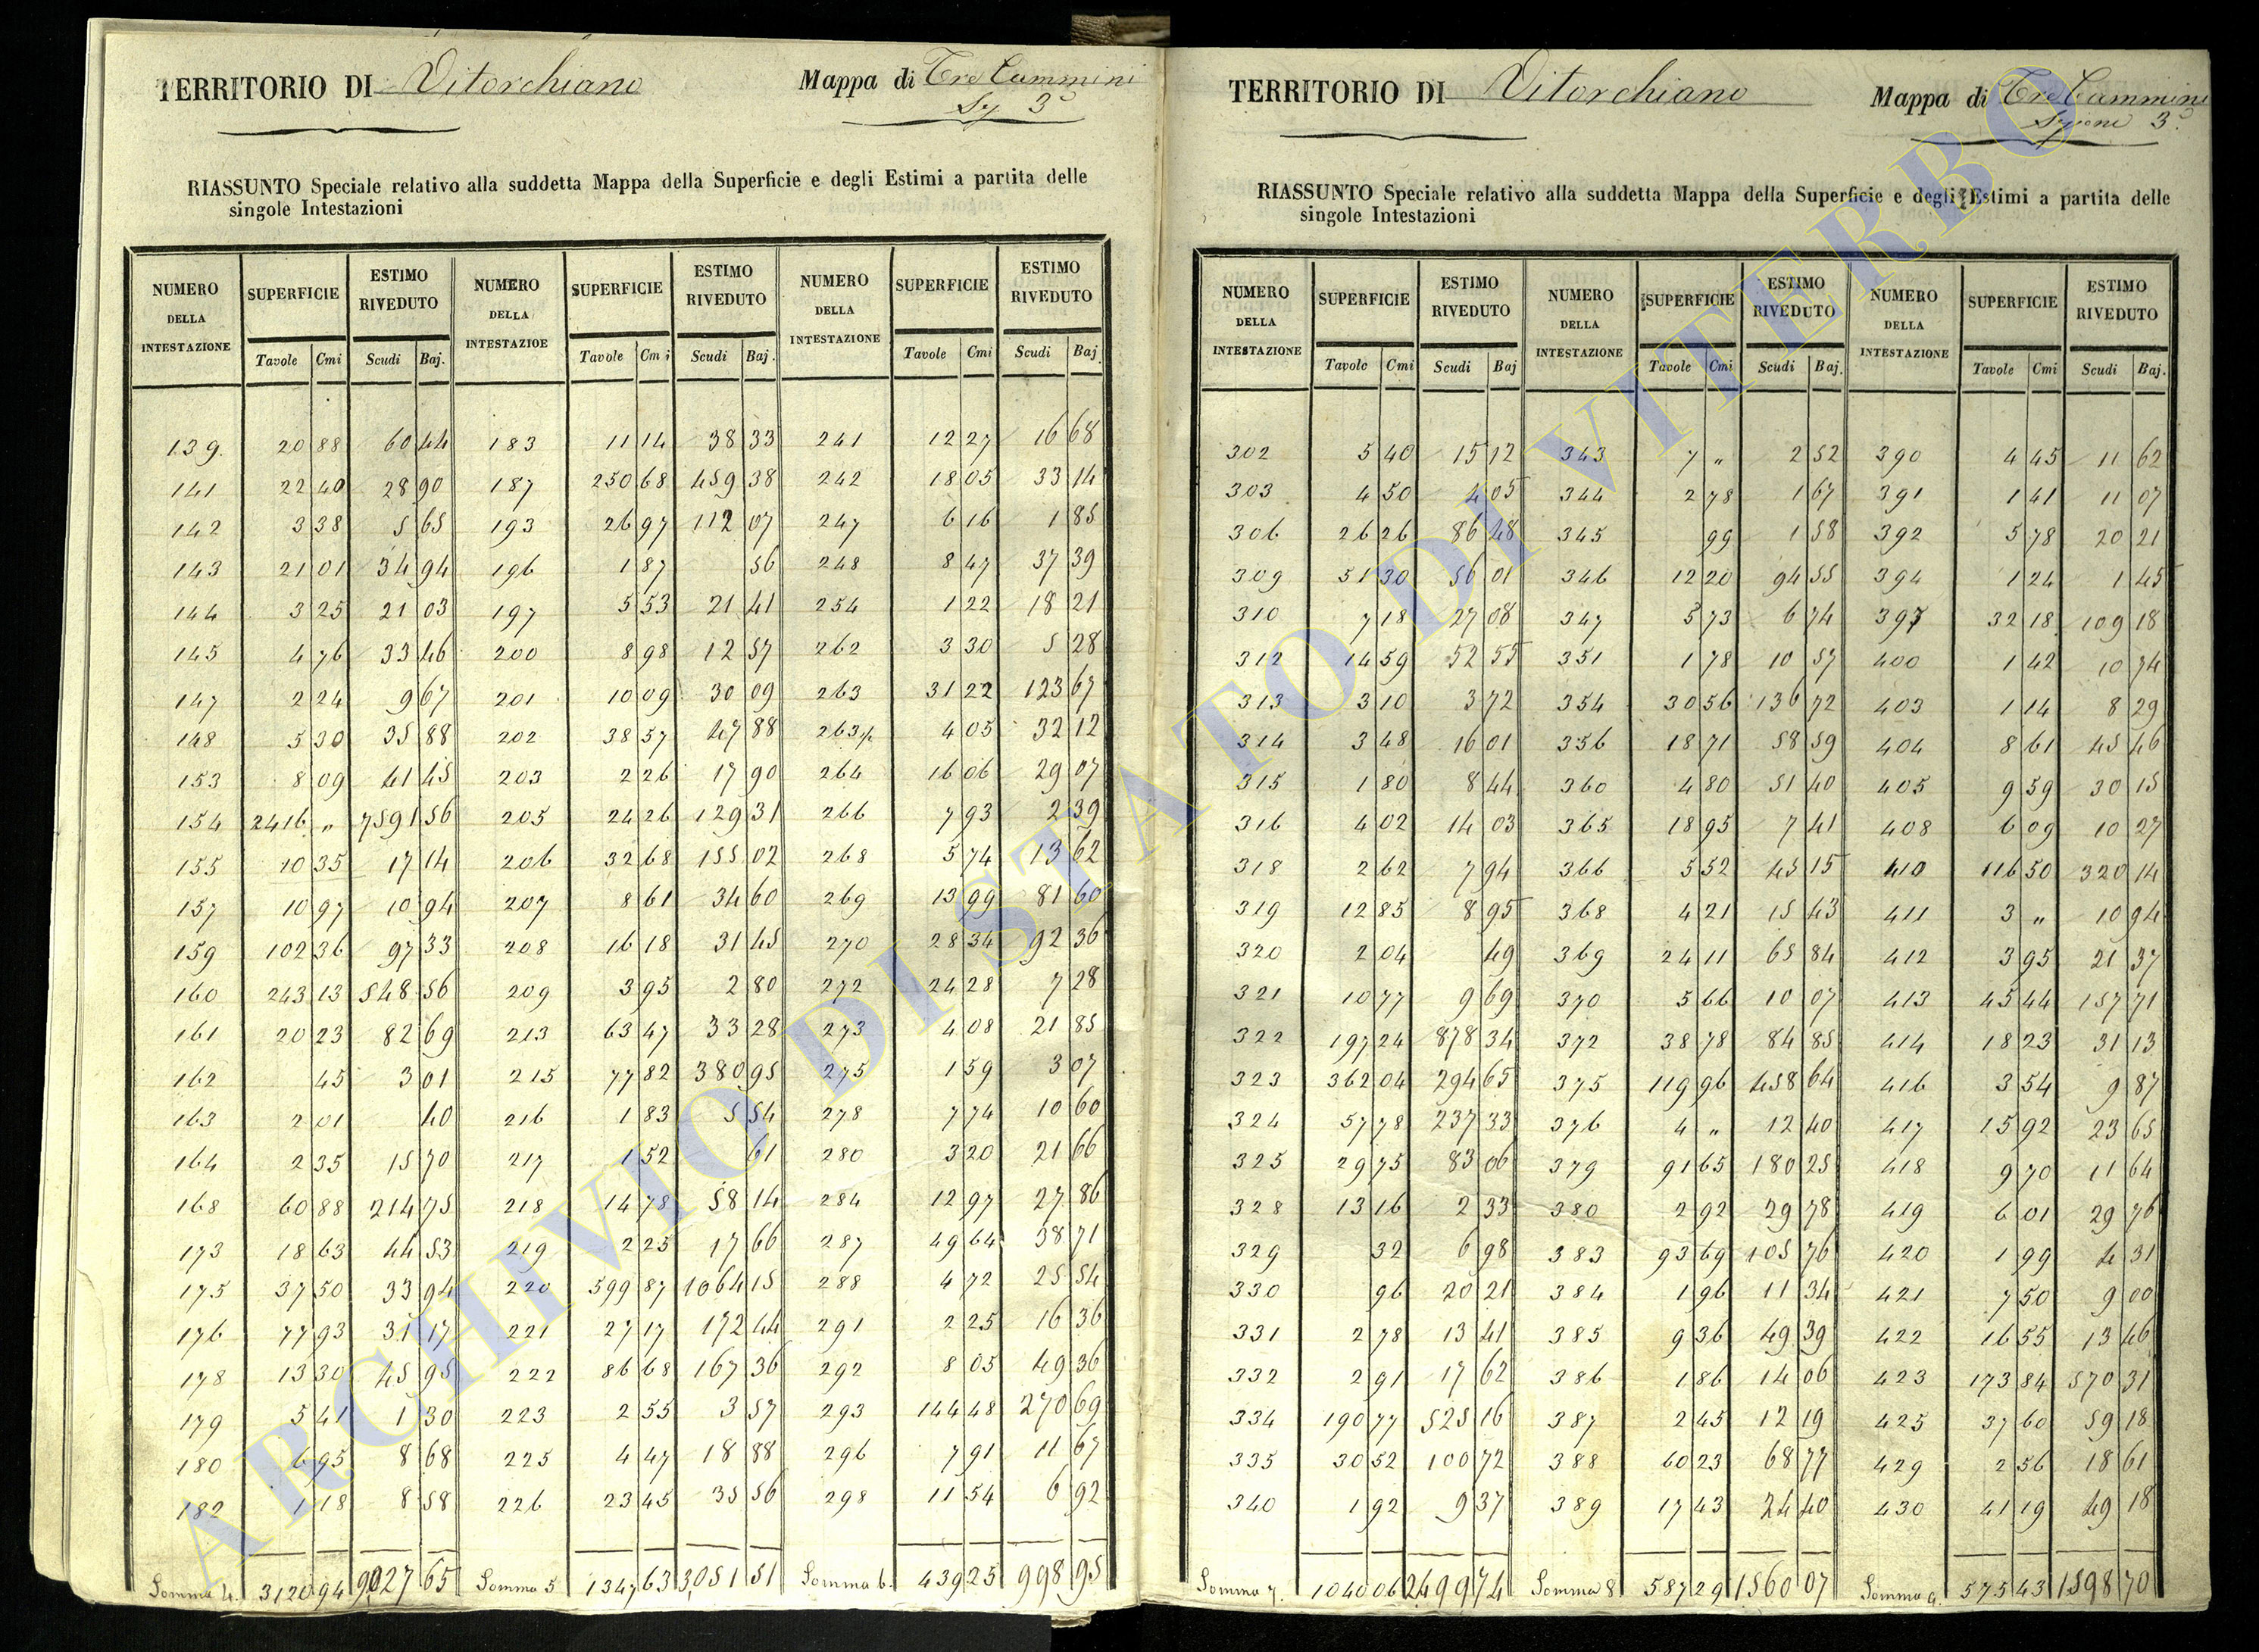 TERRITORIO DI Vitorchiano Mappa di Tre Cammini
Sz 3ª
RIASSUNTO Speciale relativo alla suddetta Mappa della Superficie e degli Estimi a partita delle
singole Intestazioni
NUMERO DELLA INTESTAZIONE SUPERFICIE ESTIMO RIVEDUTO NUMERO DELLA INTESTAZIOE SUPERFICIE ESTIMO RIVEDUTO NUMERO DELLA INTESTAZIONE SUPERFICIE ESTIMO RIVEDUTO
Tavole Cmi Scudi Baj. Tavole Cmi Scudi Baj. Tavole Cmi Scudi Baj
139. 20 88 60 44 183 11 14 38 33 241 12 27 16 68
141 22 40 28 90 187 250 68 459 38 242 18 05 33 14
142 3 38 5 65 193 26 97 112 07 247 6 16 1 85
143 21 01 34 94 196 1 87 56 248 8 47 37 39
144 3 25 21 03 197 5 53 21 41 254 1 22 18 21
145 4 76 33 46 200 8 98 12 57 262 3 30 5 28
147 2 24 9 67 201 10 09 30 09 263 31 22 123 67
148 5 30 35 88 202 38 57 47 88 263½ 4 05 32 12
153 8 09 41 45 203 2 26 17 90 264 16 06 29 07
154 2416 „ 7591 56 205 24 26 129 31 266 7 93 2 39
155 10 35 17 14 206 32 68 155 02 268 5 74 13 62
157 10 97 10 94 207 8 61 34 60 269 13 99 81 60
159 102 36 97 33 208 16 18 31 45 270 28 34 92 36
160 243 13 548 56 209 3 95 2 80 272 24 28 7 28
161 20 23 82 69 213 63 47 33 28 273 4 08 21 85
162 45 3 01 215 77 82 380 95 275 1 59 3 07
163 2 01 40 216 1 83 5 54 278 7 74 10 60
164 2 35 15 70 217 1 52 61 280 3 20 21 66
168 60 88 214 75 218 14 78 58 14 284 12 97 27 86
173 18 63 44 53 219 2 25 17 66 287 49 64 38 71
175 37 50 33 94 220 599 87 1064 15 288 4 72 25 54
176 77 93 31 17 221 27 17 172 44 291 2 25 16 36
178 13 30 45 95 222 86 68 167 36 292 8 05 49 36
179 5 41 1 30 223 2 55 3 57 293 144 48 270 69
180 6 95 8 68 225 4 47 18 88 296 7 91 11 67
182 1 18 8 58 226 23 45 35 56 298 11 54 6 92
Somma 4. 3120 94 9027 65 Somma 5 1347 63 3051 51 Somma 6. 439 25 998 95
TERRITORIO DI Vitorchiano Mappa di Tre Cammini
Szione 3ª
RIASSUNTO Speciale relativo alla suddetta Mappa della Superficie e degli Estimi a partita delle
singole Intestazioni
NUMERO DELLA INTESTAZIONE SUPERFICIE ESTIMO RIVEDUTO NUMERO DELLA INTESTAZIONE SUPERFICIE ESTIMO RIVEDUTO NUMERO DELLA INTESTAZIONE SUPERFICIE ESTIMO RIVEDUTO
Tavole Cmi Scudi Baj Tavole Cmi Scudi Baj. Tavole Cmi Scudi Baj.
302 5 40 15 12 343 7 „ 2 52 390 4 45 11 62
303 4 50 4 05 344 2 78 1 67 391 1 41 11 07
306 26 26 86 48 345 99 1 58 392 5 78 20 21
309 51 30 56 01 346 12 20 94 55 394 1 24 1 45
310 7 18 27 08 347 5 73 6 74 397 32 18 109 18
312 14 59 52 55 351 1 78 10 57 400 1 42 10 74
313 3 10 3 72 354 30 56 136 72 403 1 14 8 29
314 3 48 16 01 356 18 71 58 59 404 8 61 45 46
315 1 80 8 44 360 4 80 51 40 405 9 59 30 15
316 4 02 14 03 365 18 95 7 41 408 6 09 10 27
318 2 62 7 94 366 5 52 45 15 410 116 50 320 14
319 12 85 8 95 368 4 21 15 43 411 3 „ 10 94
320 2 04 49 369 24 11 65 84 412 3 95 21 37
321 10 77 9 69 370 5 66 10 07 413 45 44 157 71
322 197 24 878 34 372 38 78 84 85 414 18 23 31 13
323 362 04 294 65 375 119 96 458 64 416 3 54 9 87
324 57 78 237 33 376 4 „ 12 40 417 15 92 23 65
325 29 75 83 06 379 91 65 180 25 418 9 70 11 64
328 13 16 2 33 380 2 92 29 78 419 6 01 29 76
329 32 6 98 383 93 69 105 76 420 1 99 4 31
330 96 20 21 384 1 96 11 34 421 7 50 9 00
331 2 78 13 41 385 9 36 49 39 422 16 55 13 46
332 2 91 17 62 386 1 86 14 06 423 173 84 570 31
334 190 77 525 16 387 2 45 12 19 425 37 60 59 18
335 30 52 100 72 388 60 23 68 77 429 2 56 18 61
340 1 92 9 37 389 17 43 24 40 430 41 19 49 18
Somma 7. 1040 06 2499 74 Somma 8 587 29 1560 07 Somma 9. 575 43 1598 70
ARCHIVIO DI STATO DI VITERBO